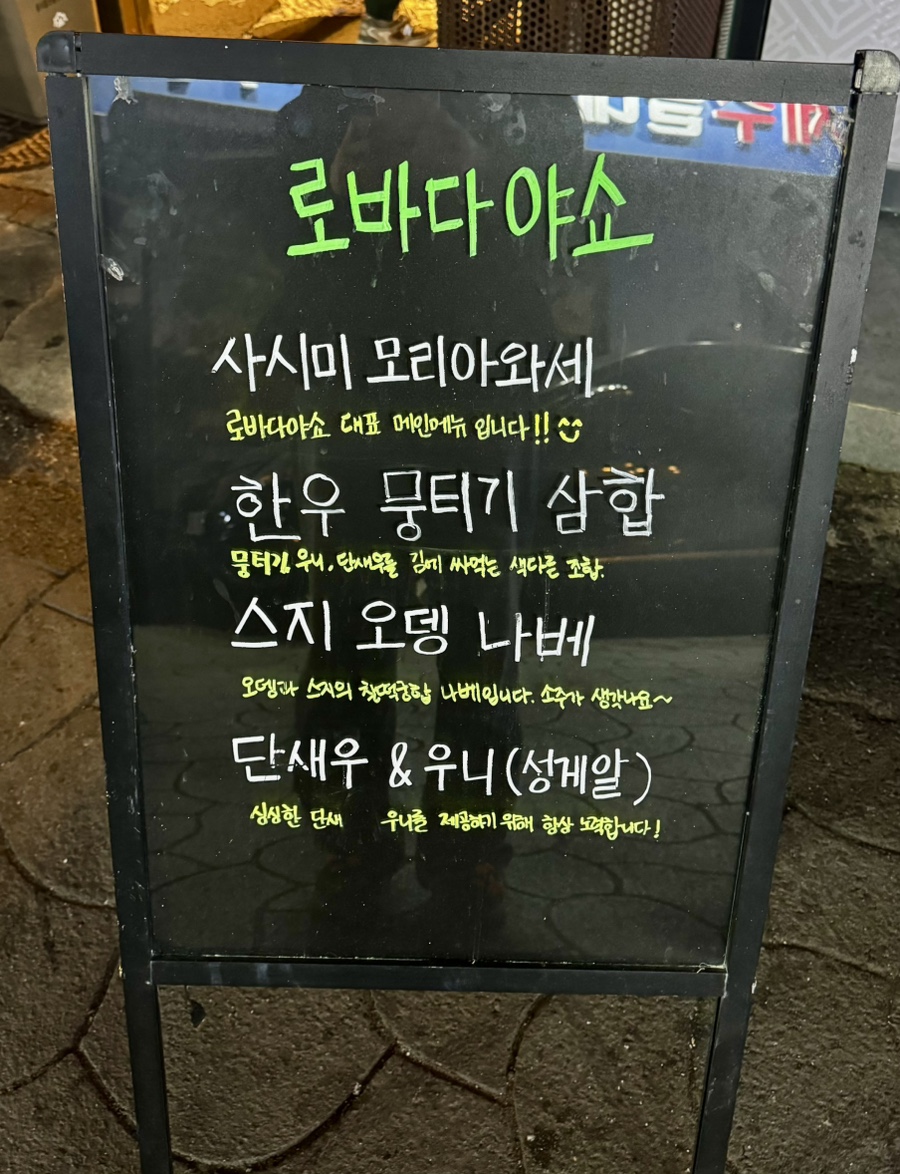 로바다야쇼
사시미 모리아와세
로바다야쇼 대표 메인메뉴 입니다!!
한우 뭉티기 삼합
뭉티기, 우니, 단새우를 김에 싸먹는 색다른 조합.
스지 오뎅 나베
오뎅과 스지의 찰떡궁합 나베입니다. 소주가 생각나요~
단새우 & 우니(성게알)
싱싱한 단새 우니를 제공하기 위해 항상 노력합니다!